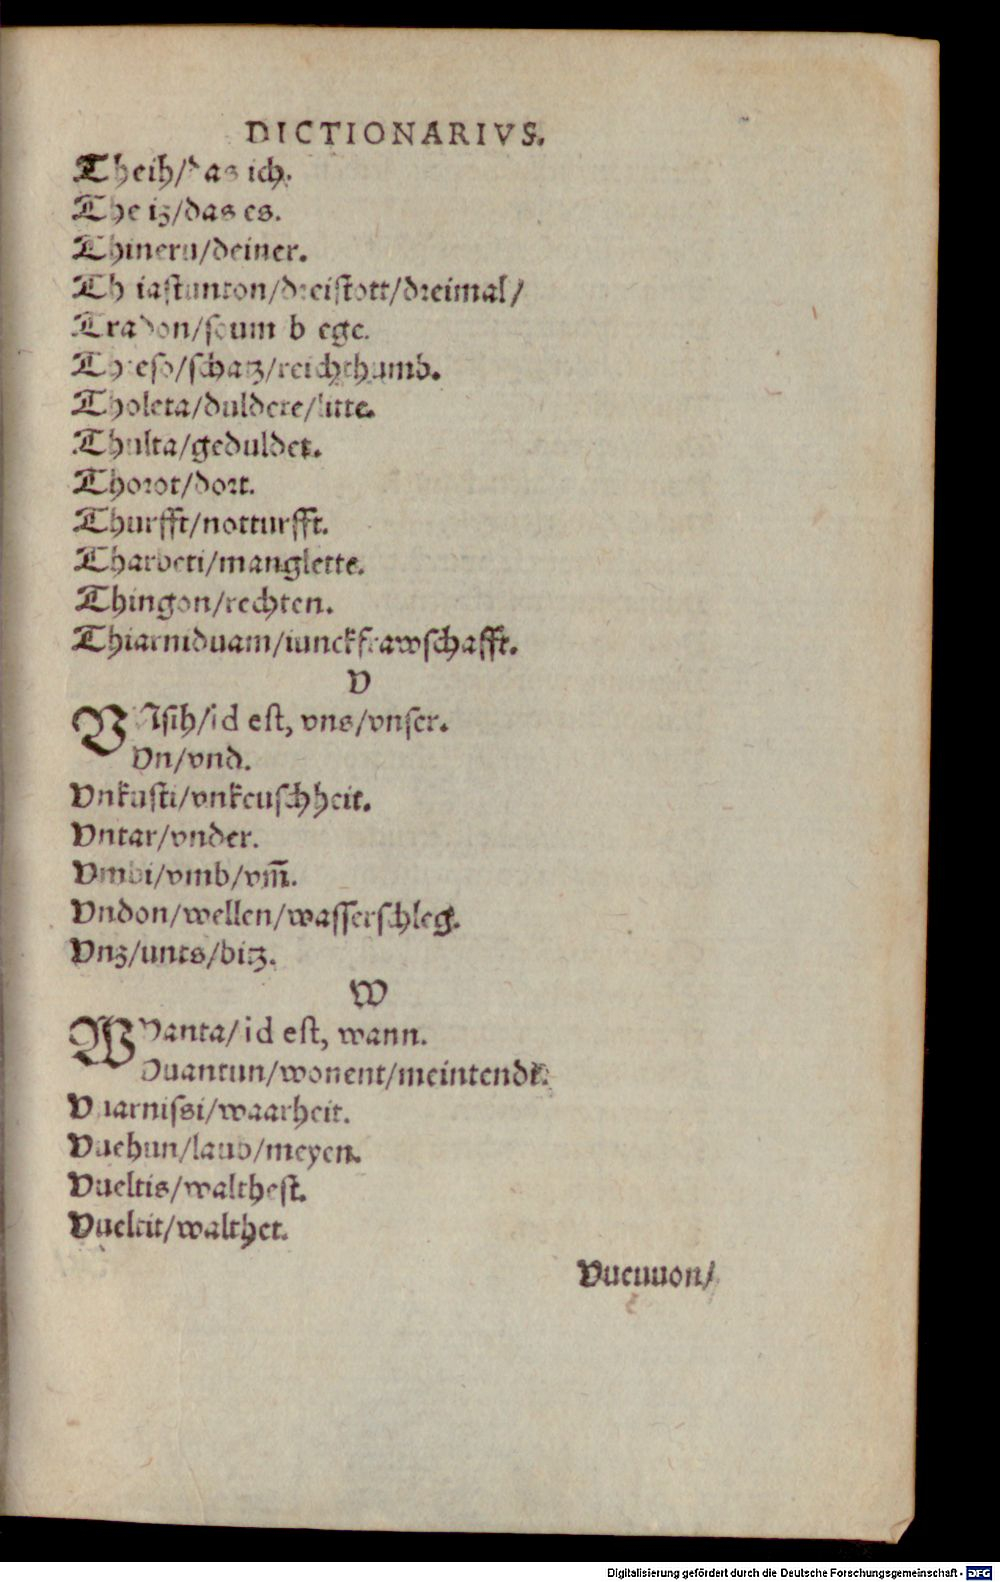 DICTIONARIVS.
Theih/das ich.
The iz/das es.
Thineru/deiner.
Thriastunton/dreistott/dreimal/
Tradon/soum b ege.
Threso/schatz/reichthumb.
Tholeta/duldete/litte.
Thulta/geduldet.
Thorot/dort.
Thurfft/notturfft.
Tharbeti/manglette.
Thingon/rechten.
Thiarniduam/iunckfrawschafft.
V
VNsih/id est, vns/vnser.
Vn/vnd.
Vnkusti/vnkeuschheit.
Vntar/vnder.
Vmbi/vmb/vm̅.
Vndon/wellen/wasserschleg.
Vnz/unts/bitz.
W
WVanta/id est, wann.
Vuantun/wonent/meintendt.
Vuarnissi/waarheit.
Vuehun/laub/meyen.
Vueltis/walthest.
Vueltit/walthet.
Vueuuon/
Digitalisierung gefördert durch die Deutsche Forschungsgemeinschaft - DFG